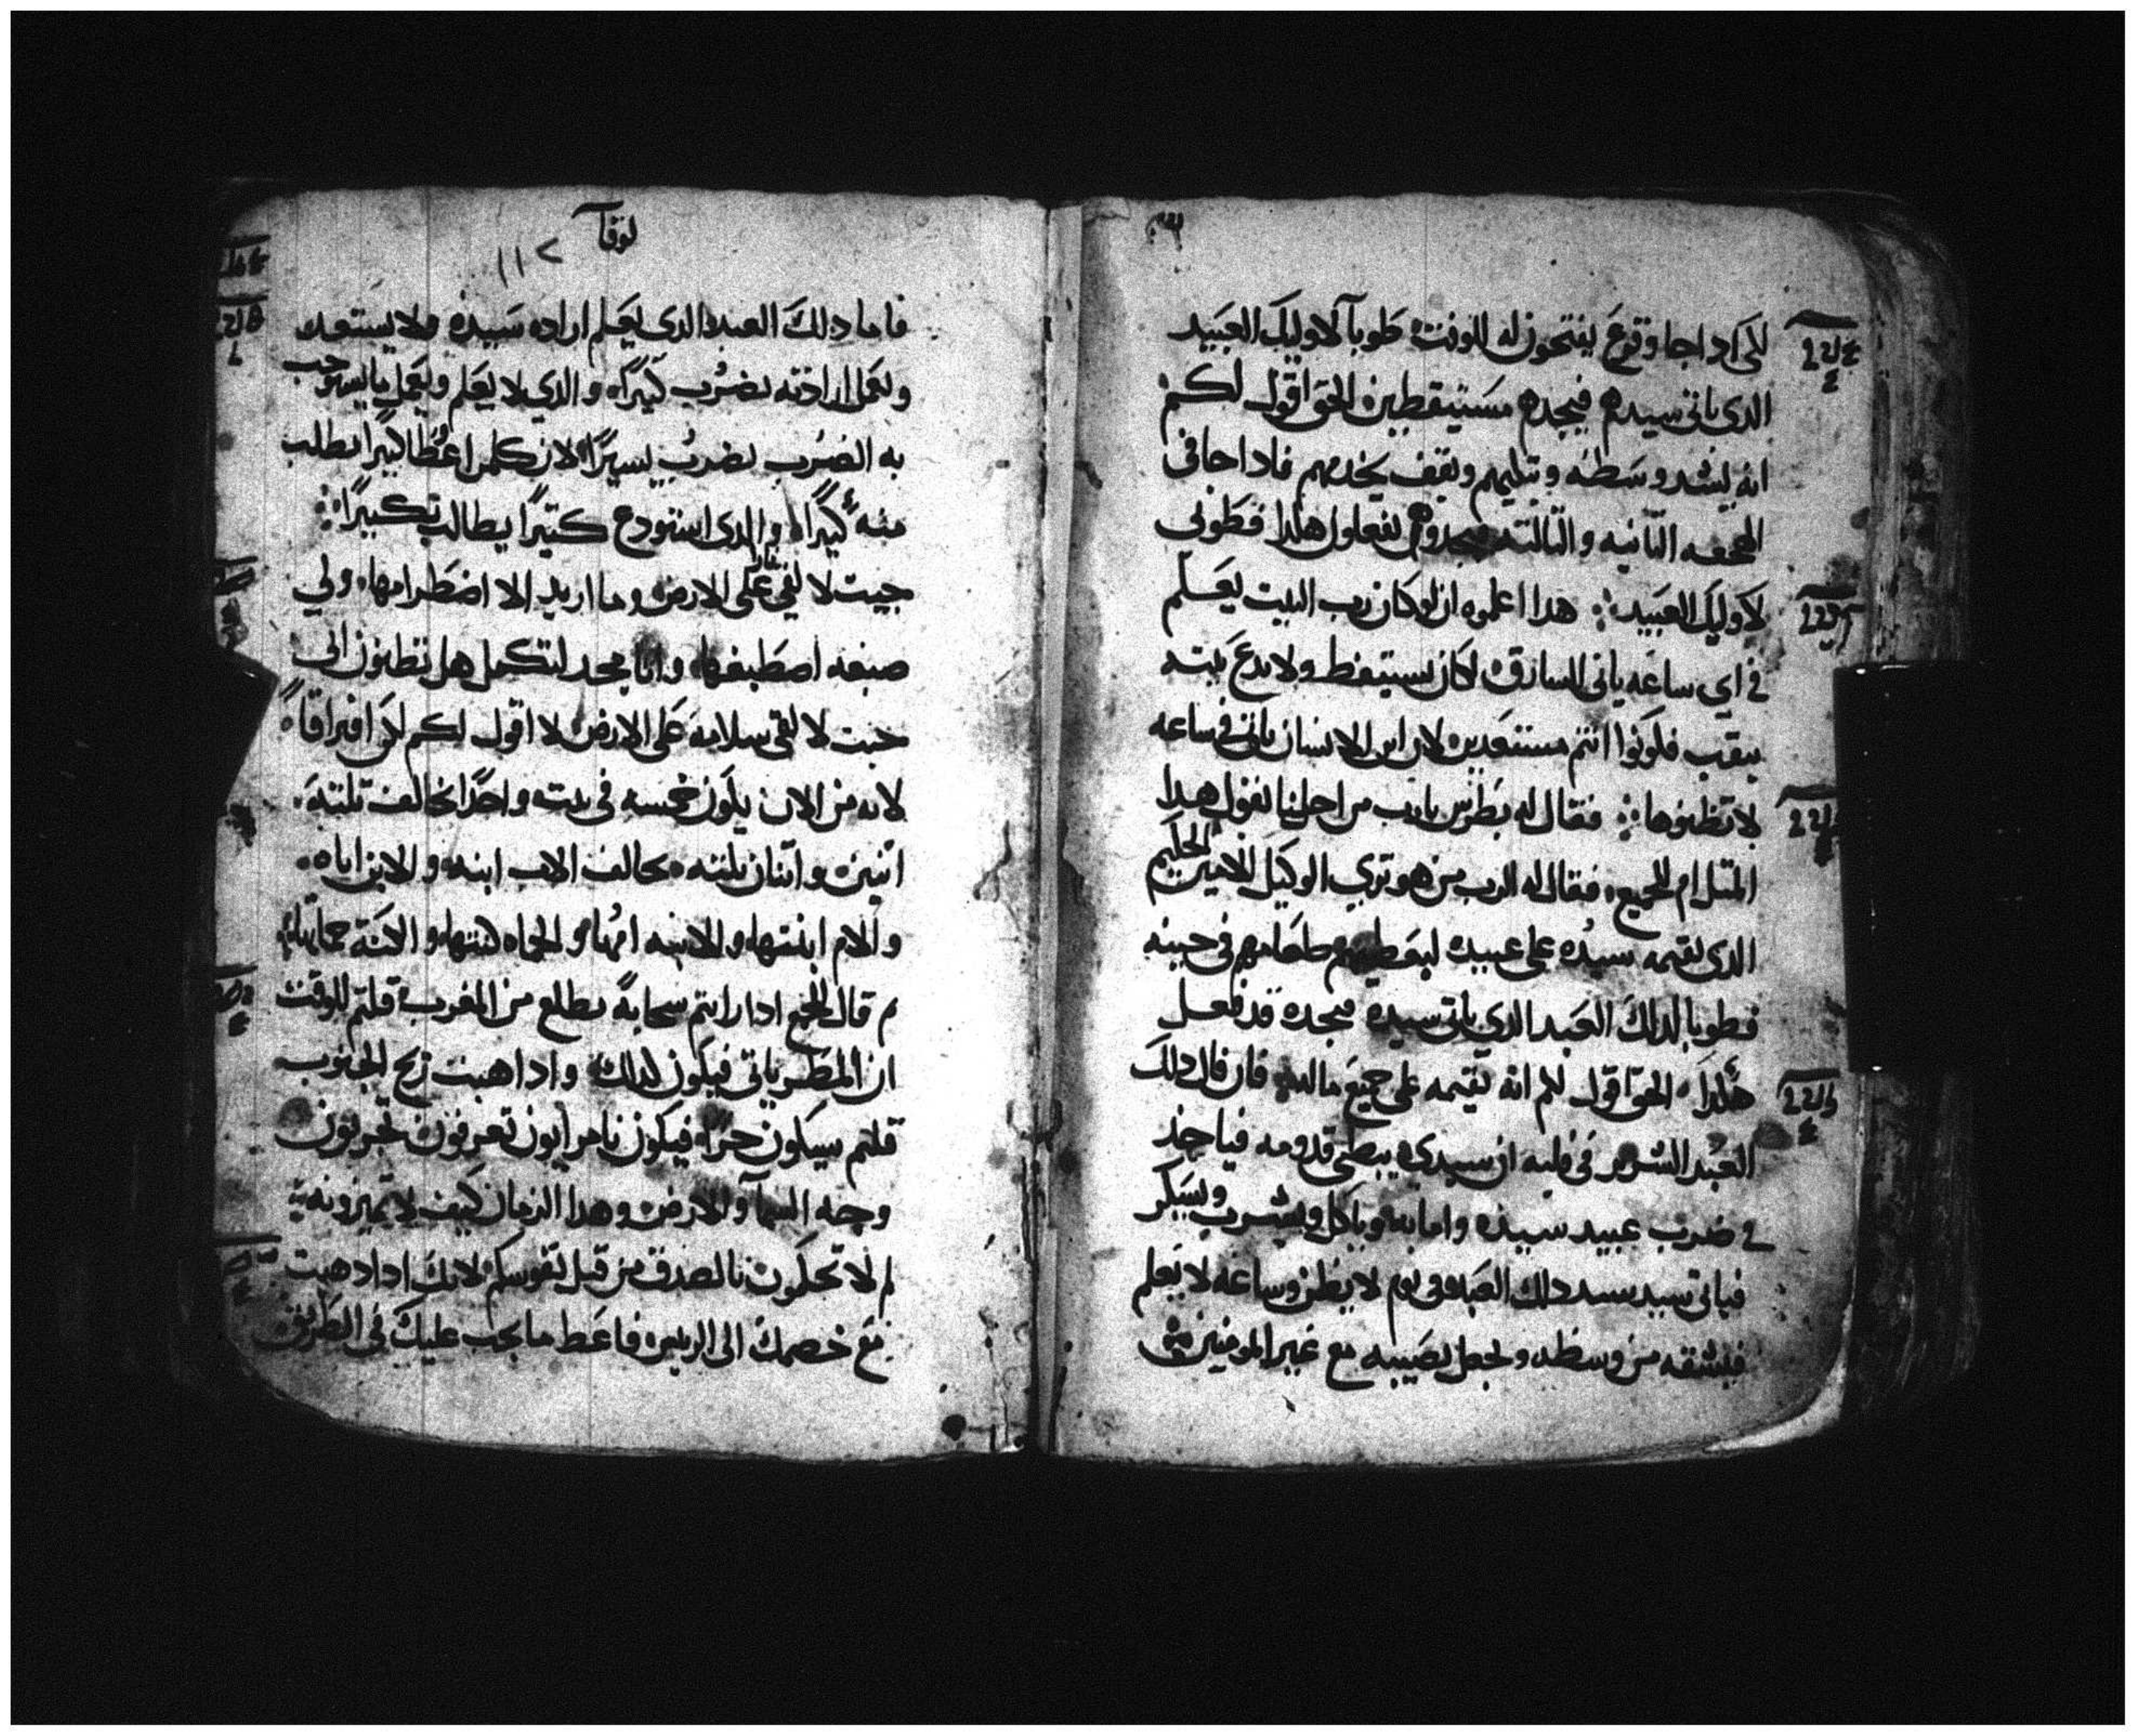 لكى ادا جا وقرع يفتحون له للوقت طوبا لاوليك العبيد
الدى ياتى سيدهم فيجدهم مستيقظين الحق اقول لكم
انه يشد وسطه ويتكيهم ويقف يخدمهم فادا جا فى
الهجعه التانيه والتالته يفعلون هكدا فطوبى
لاوليك العبيد هدا اعلموه ان لو كان رب البيت يعلم
فى اى ساعه ياتى السارق لكان يستيقظ ولا يدع بيته
ينقب فكونوا انتم مستعدين لان ابن الانسان ياتى فى ساعه
لا تظنوها فقال له بطرس يارب من اجلنا تقول هدا
المتل ام للجميع فقال له الرب من هو ترى الوكيل الامين الحكيم
الدى يقيمه سيده على عبيده ليعطيهم طعامهم فى حينه
فطوبا لدلك العبد الدى ياتى سيده فيجده قد فعل
هكدا الحق اقول لكم انه يقيمه على جميع ماله فان قال دلك
العبد الشرير فى قلبه ان سيدى يبطى قدومه فياخد
فى ضرب عبيد سيده وامايه وياكل ويشرب ويسكر
فياتى سيد دلك العبد فى يوم لا يظن وساعه لا يعلم
فيشقه من وسطه ويجعل نصيبه مع غير المومنين
لوقا
١١٢
فاما دلك العبد الدى يعلم اراده سيده ولا يستعد
ويعمل ارادته يضرب كتيرا والدى لا يعلم ويعمل ما يستوجب
به الضرب يضرب يسيرا لان كلمن اعطا كتيرا يطلب
منه كتيرا والدى استودع كتيرا يطالب بكتير
جيت لالقى نار على الارض وما اريد الا اضطرامها ولى
صبغه اصطبغها وانا مجد لتكمل هل تظنون انى
جيت لالقى سلامه على الارض لا اقول لكم لكن افتراقا
لانه من الان يكون خمسه فى بيت واحدا يخالف تلته
اتنين واتنان تلته يخالف الاب ابنه والابن اباه
والام ابنتها والابنه امها والحماه كنتها والكنة حماتها
تم قال للجمع ادا رايتم سحابة تطلع من المغرب قلتم للوقت
ان المطر ياتى فيكون كدلك وادا هبت ريح الجنوب
قلتم سيكون حرا فيكون يامرايون تعرفون تجربون
وجه السما والارض وهدا الزمان كيف لا تميزونه
لم لا تحكمون بالصدق من قبل نفوسكم لانك ادا دهبت
مع خصمك الى الريس فاعط ما يجب عليك فى الطريق